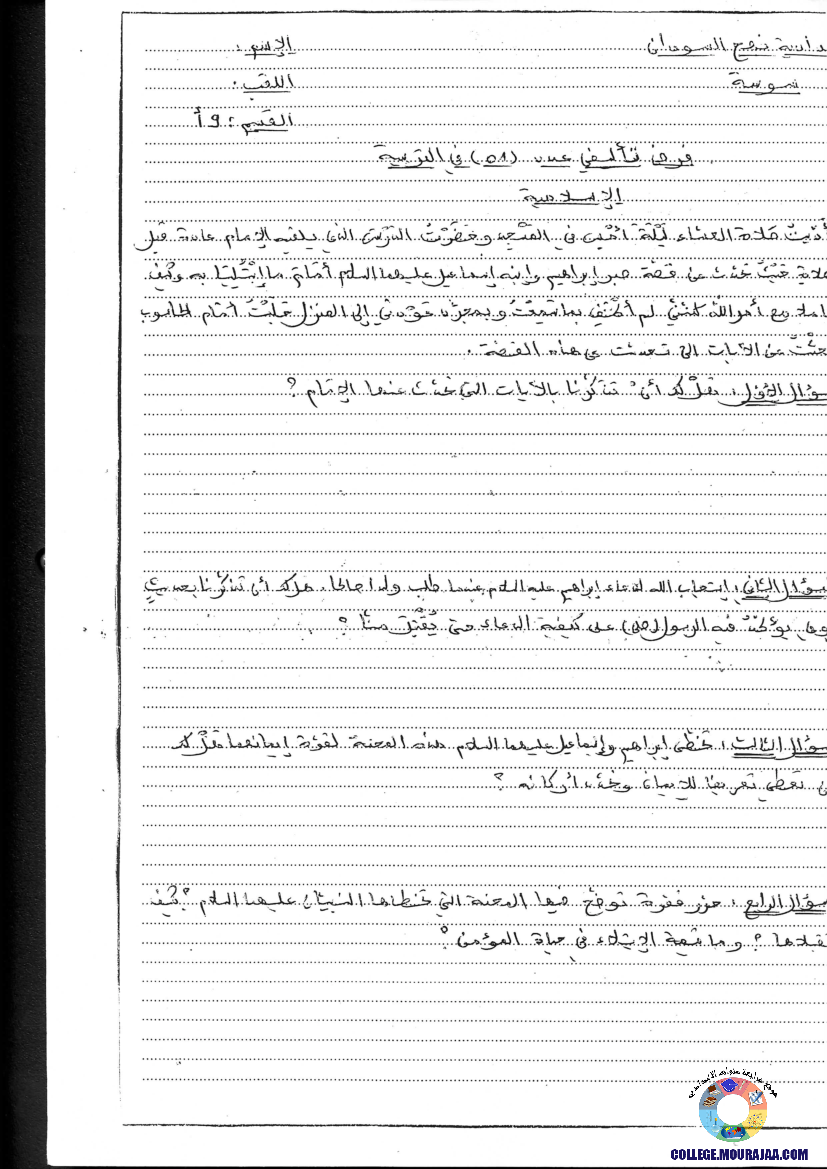 نهج السودان
الإسم :
سوسة
اللقب :
القسم : 9 أ
فرض تأليفي عدد (01) في التربية
الإسلامية
أديت صلاة العشاء ليلة أمس في المسجد وحضرت الدرس الذي يلقيه الإمام عادة قبل
حيث تحدث عن قصة صبر إبراهيم وإبنه إسماعيل عليهما السلام أمام ما إبتليا به وكيف
مع أمر الله لم أكتف بما سمعت وبمجرد عودتي إلى المنزل جلست أمام الحاسوب
عن الآيات التي تحدثت عن هذه القصة .
الأول : هل لك أن تذكرنا بالآيات التي تحدث عنها الإمام ؟
الثاني : إستجاب الله لدعاء إبراهيم عليه السلام عندما طلب ولدا صالحا. هل لك أن تذكرنا بحديث
يؤكد فيه الرسول (ص) على كيفية الدعاء حتى يقبل منا ؟
الثالث : تخطى إبراهيم وإسماعيل عليهما السلام هذه المحنة لقوة إيمانهما هل لك
تعطي تعريفا للإيمان وتحدد أركانه ؟
الرابع : حرر فقرة توضح فيها المحنة التي تخطاها النبيان عليهما السلام ؟ كيف
وما قيمة الإبتلاء في حياة المؤمن ؟
موقع مراجعة
COLLEGE.MOURAJAA.COM